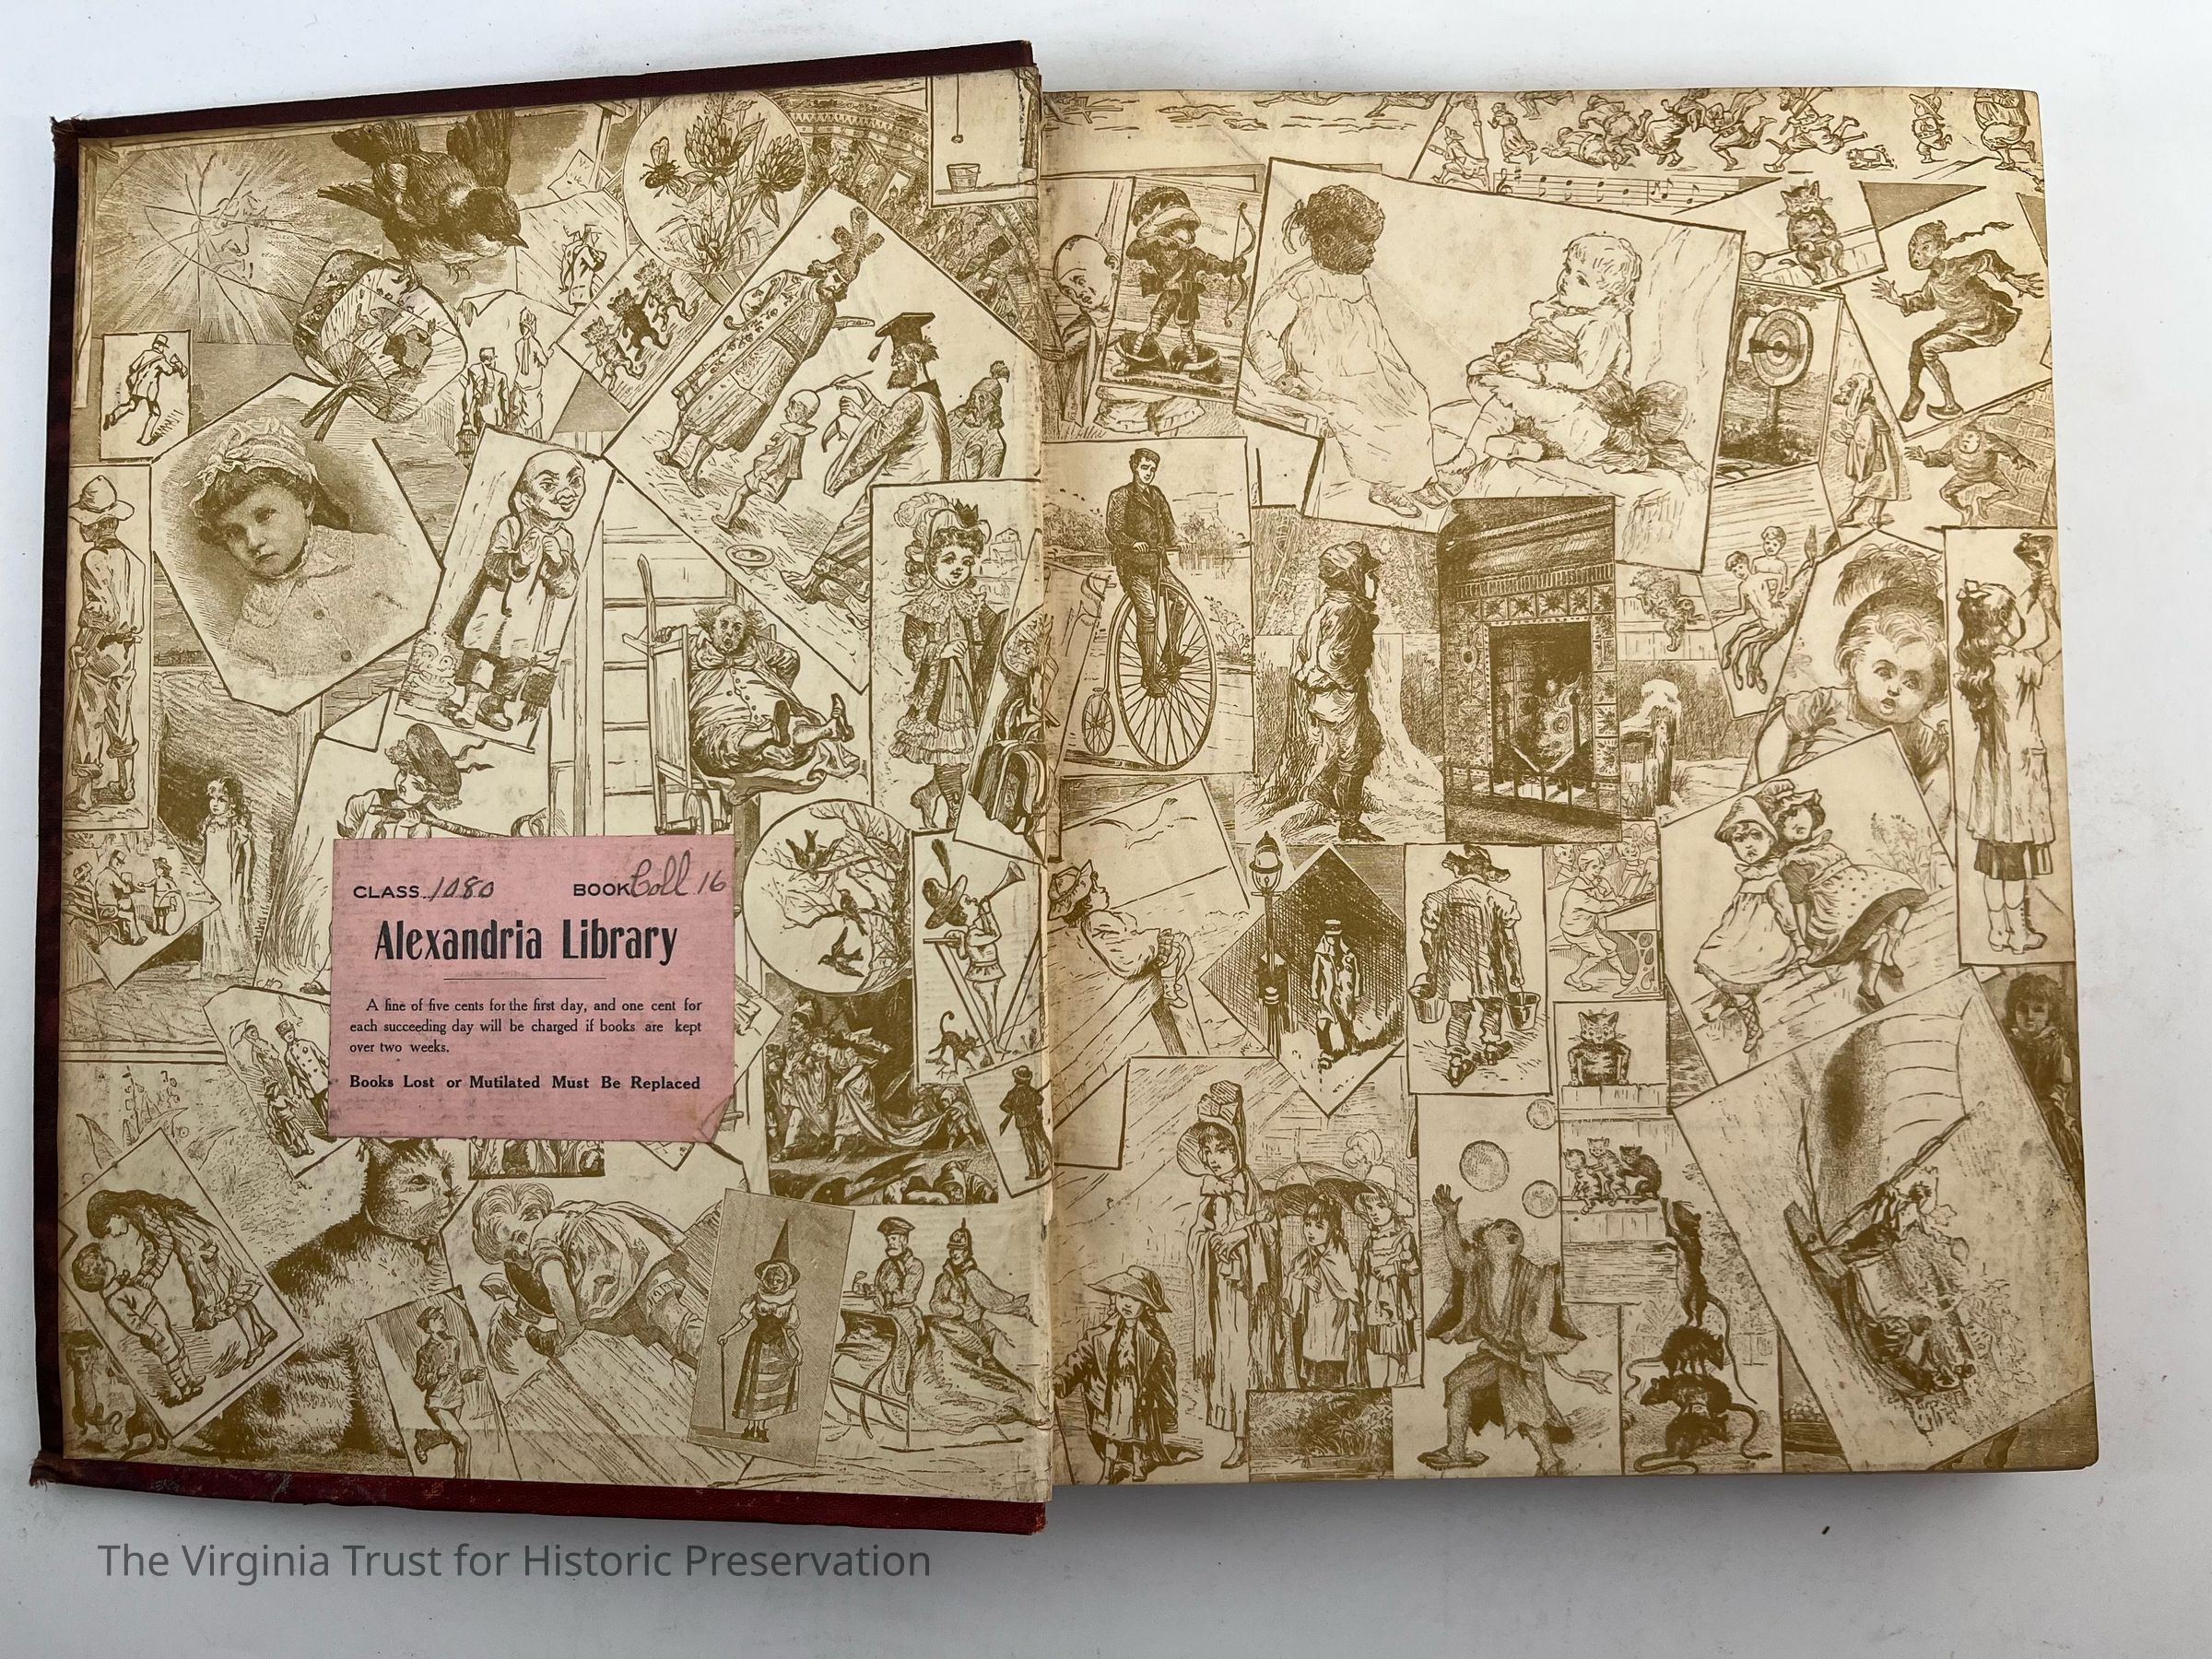 CLASS 1080 BOOK Coll 16
Alexandria Library
A fine of five cents for the first day, and one cent for
each succeeding day will be charged if books are kept
over two weeks.
Books Lost or Mutilated Must Be Replaced
The Virginia Trust for Historic Preservation